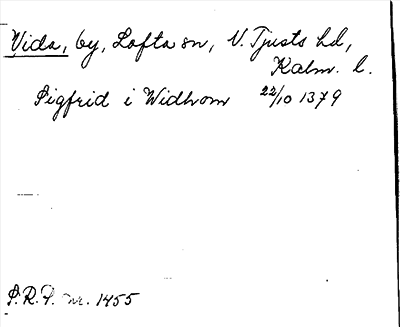 Vida, by, Lofta sn, N. Tjusts hd,
Kalm. l.
Sigfrid i Widhom 22/10 1379
S.R.P. nr. 1455